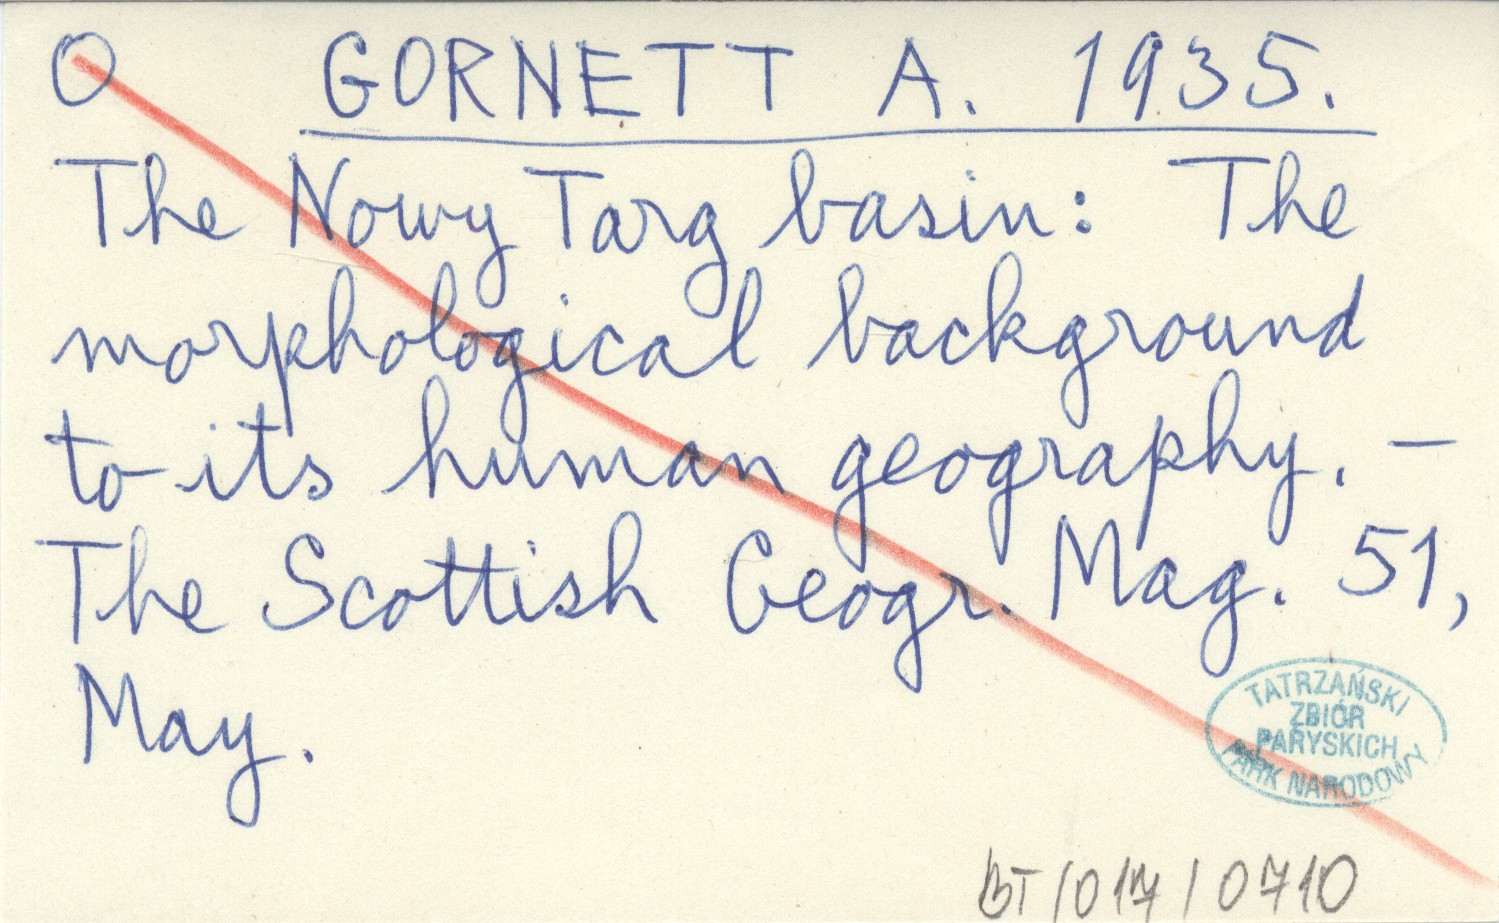 O GORNETT A. 1935.
The Nowy Targ basin: The
morphological background
to its human geography. –
The Scottish Geogr. Mag. 51,
May.
TATRZAŃSKI
ZBIÓR
PARYSKICH
PARK NARODOWY
BT/017/0710